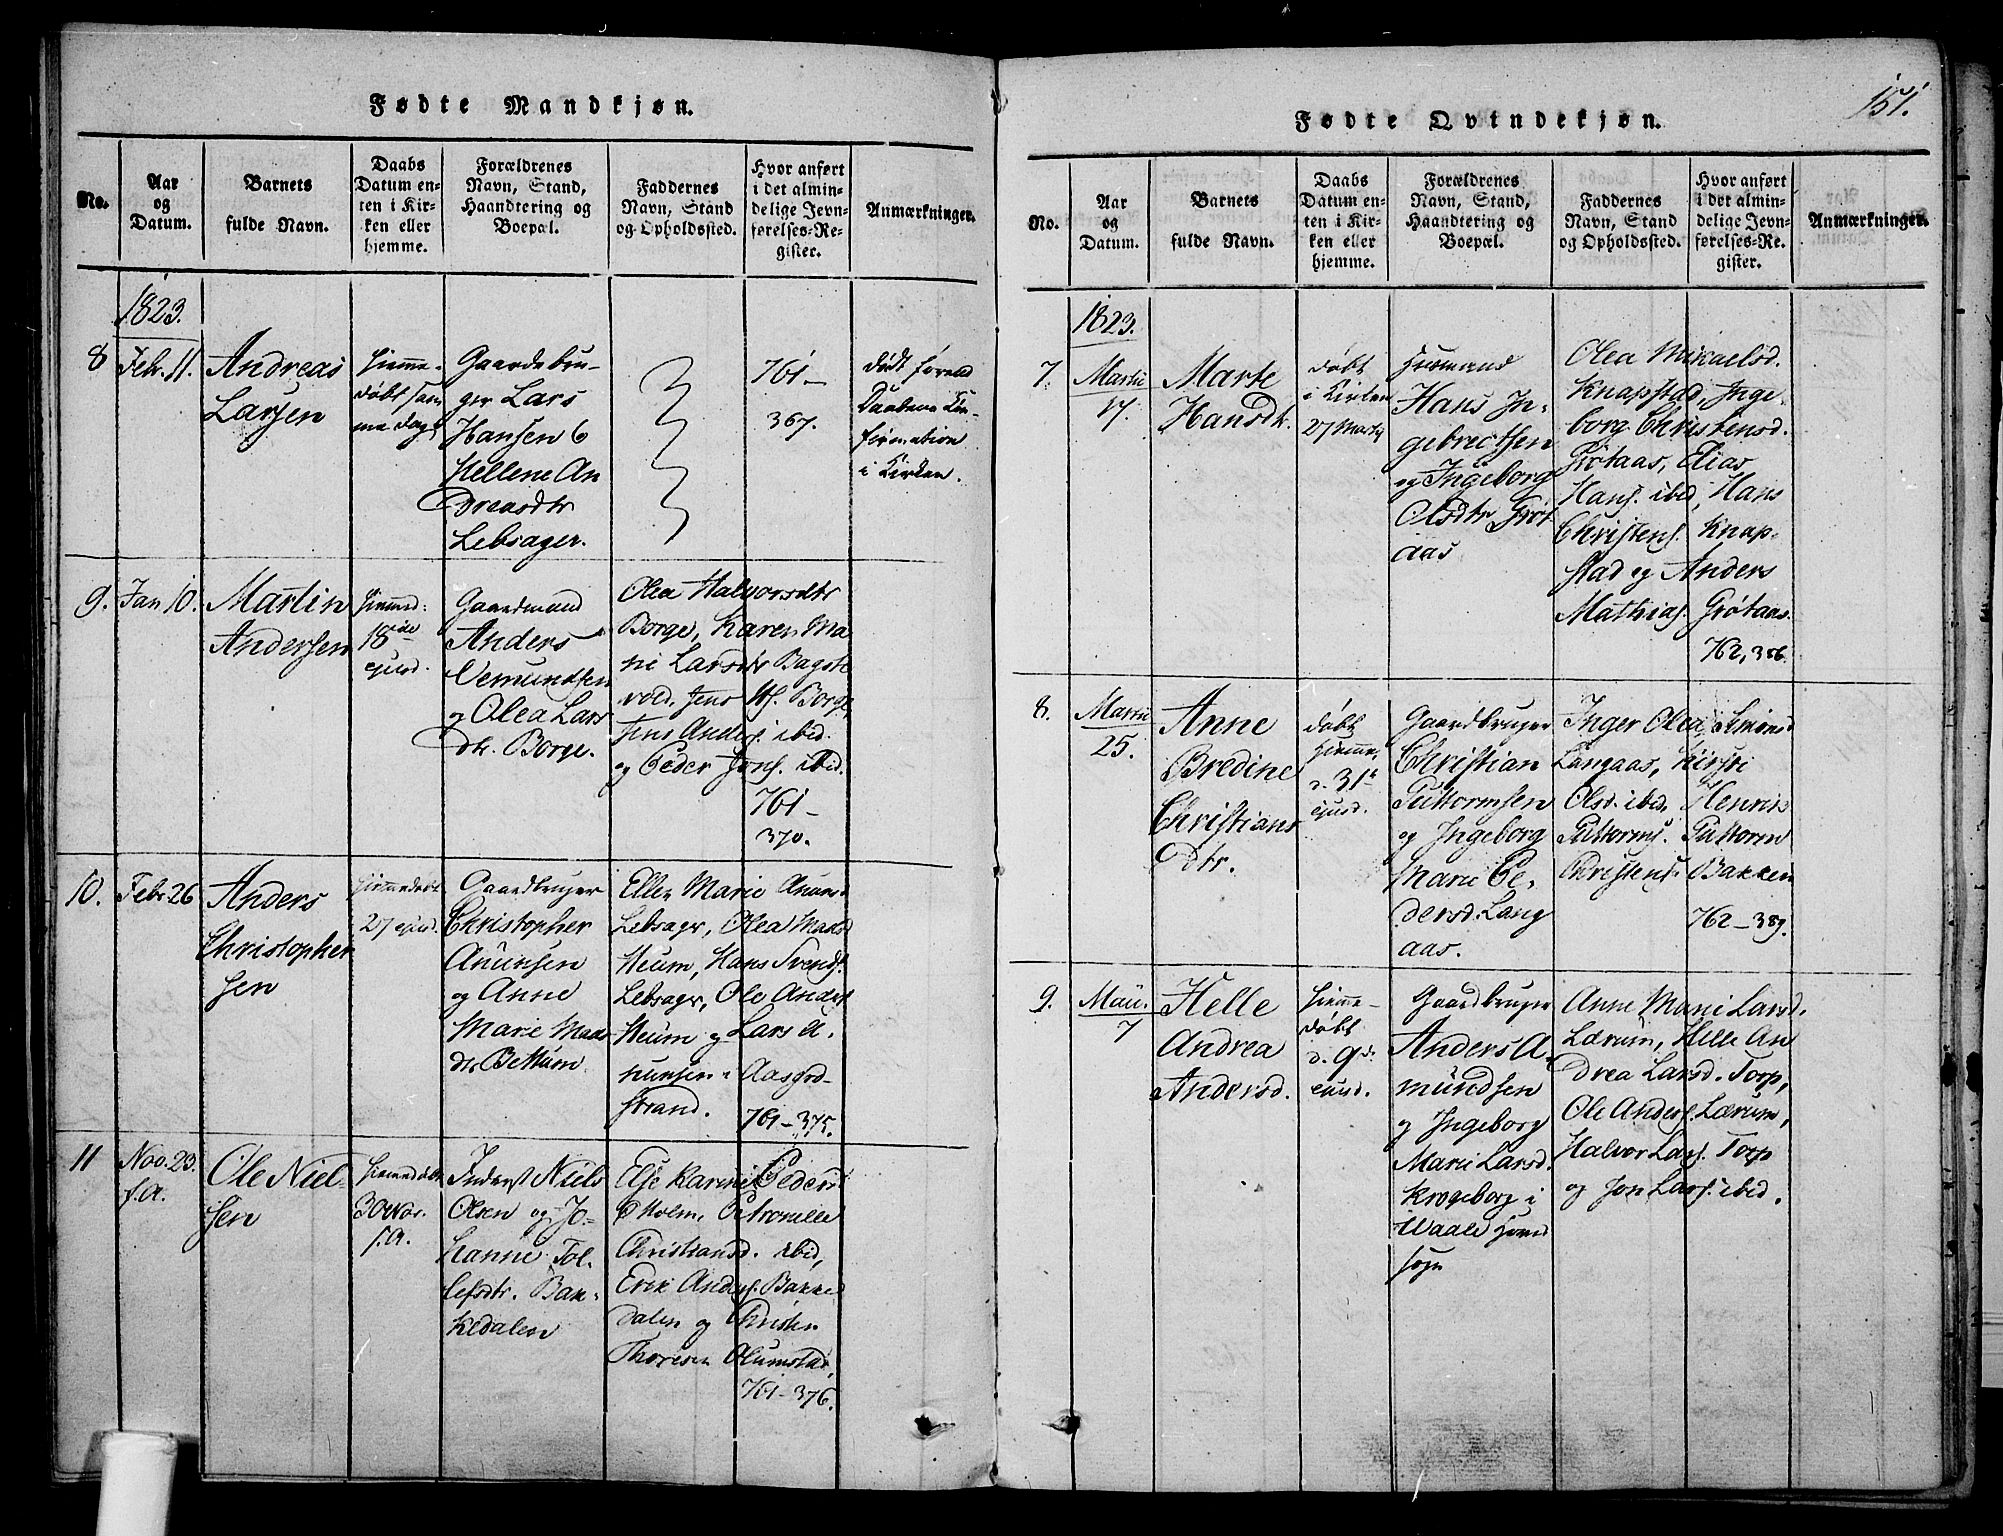 Fødte Mandkjøn.
No.
Aar
og
Datum.
Barnets
fulde Navn.
Daabs
Datum en-
ten i Kir-
ken eller
hjemme.
Forældrenes
Navn, Stand,
Haandtering og
Boepæl.
Faddernes
Navn, Stand
og Opholdssted.
Hvor anført
i det almin-
delige Jevn-
førelses-Re-
gister.
Anmærkninger.
1823.
8
Febr. 11.
Andreas
Larsen
Hiemme-
døbt sam
me dag
Gaardebru-
ger Lars
Hansen &
Hellene An
dreasdtr
Lebsager.
761-
367.
Død førend
Daabens Con-
firmation
i Kirken.
9.
Jan 10.
Martin
Andersen
Hiemmed:
18de
ejusd.
Gaardmand
Anders
Vemundsen
og Olea Lars
dtr. Borge.
Olea Halvorsdtr
Borge, Karen Ma
rie Larsdtr Bagste
vold. Jens Borge,
Jens Anders. ibid.
og Peder Jons. ibid.
761-
370.
10.
Febr 26
Anders
Christopher
sen
Hiemmedøbt
27 ejusd.
Gaardbruger
Christopher
Anunsen
og Anne
Marie Mads
dtr Bettum
Ellen Marie Anuns
Lebsagr, Olea Madsd
Heum, Hans Svends.
Lebsagr, Ole Anders
Heum og Lars A.
nunsen Aasgrd-
strand.
761-375.
11
Nov. 23.
f.A.
Ole Niel
sen
Hiemmedøbt
30 Nov.
f.A.
Inderst Niels
Olsen og Jo-
hanne Tol-
lefsdtr. Bak-
kedalen
Else Karine Peders
Holm, Petronelle
Christiansd. ibid,
Erik Anders. Bakke
dalen og Christen
Thoresen Olumstad,
761-376.
151.
Fødte Qvindekjøn.
No.
Aar
og
Datum.
Barnets
fulde Navn.
Daabs
Datum en-
ten i Kir-
ken eller
hjemme.
Forældrenes
Navn, Stand,
Haandtering og
Boepæl.
Faddernes
Navn, Stand
og Opholdssted.
Hvor anført
i det almin-
delige Jevn-
førelses-Re-
gister.
Anmærkninger.
1823.
7.
Martii
17.
Marte
Hansdtr.
Døbt
i Kirken
27 Martij
Huusmand
Hans In-
gebrectsen
og Ingeborg
Olsdtr Grøt
aas
Olea Mikaelsd.
Knapstad, Inge-
borg Christensd.
Grøtaas, Elias
Hans. ibid, Hans
Christens. Knap-
stad og Anders
Mathias. Grøtaas.
762, 386.
8.
Martii
25.
Anne
Bredine
Christians
dtr.
Døbt
hiemme,
d. 31t
ejusd.
Gaardbruger
Christian
Guttormsen
og Ingeborg
Marie Pe-
dersd. Lang
aas.
Inger Olea Simonsd
Langaas, Kirsti
Olsd. ibid, Henrik
Guttorms. Guttorm
Christens. Bakken
762-389.
9.
Maii.
7
Helle
Andrea
Andersd.
Hiemme-
døbt
d. 9d.
ejusd.
Gaardbruger
Anders A-
mundsen
og Ingeborg
Marie Larsd.
Krogeborg i
Waale Hoved
sogn
Anne Marie Larsd.
Lærum, Helle An
drea Larsd. Torp,
Ole Anders. Lærum,
Halvor Lars. Torp
og Jon Lars. ibid.